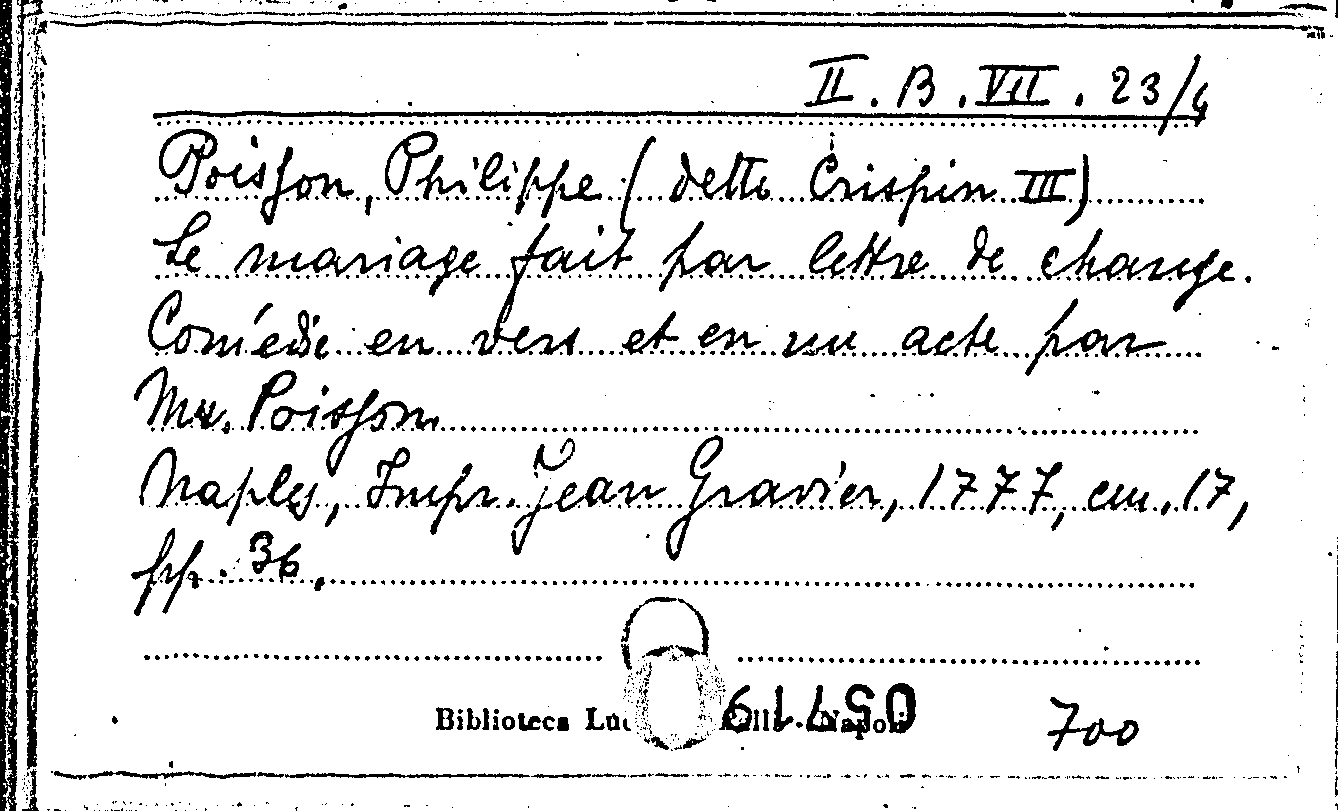 II. B. VII. 23/4
Poisson, Philippe (dette Crispin III)
Le mariage fait par lettre de change.
Comédie en vers et en un acte par
Mr. Poisson.
Naples, Impr. Jean Gravier, 1777, cm. 17,
pp. 36.
Biblioteca Napoli 700